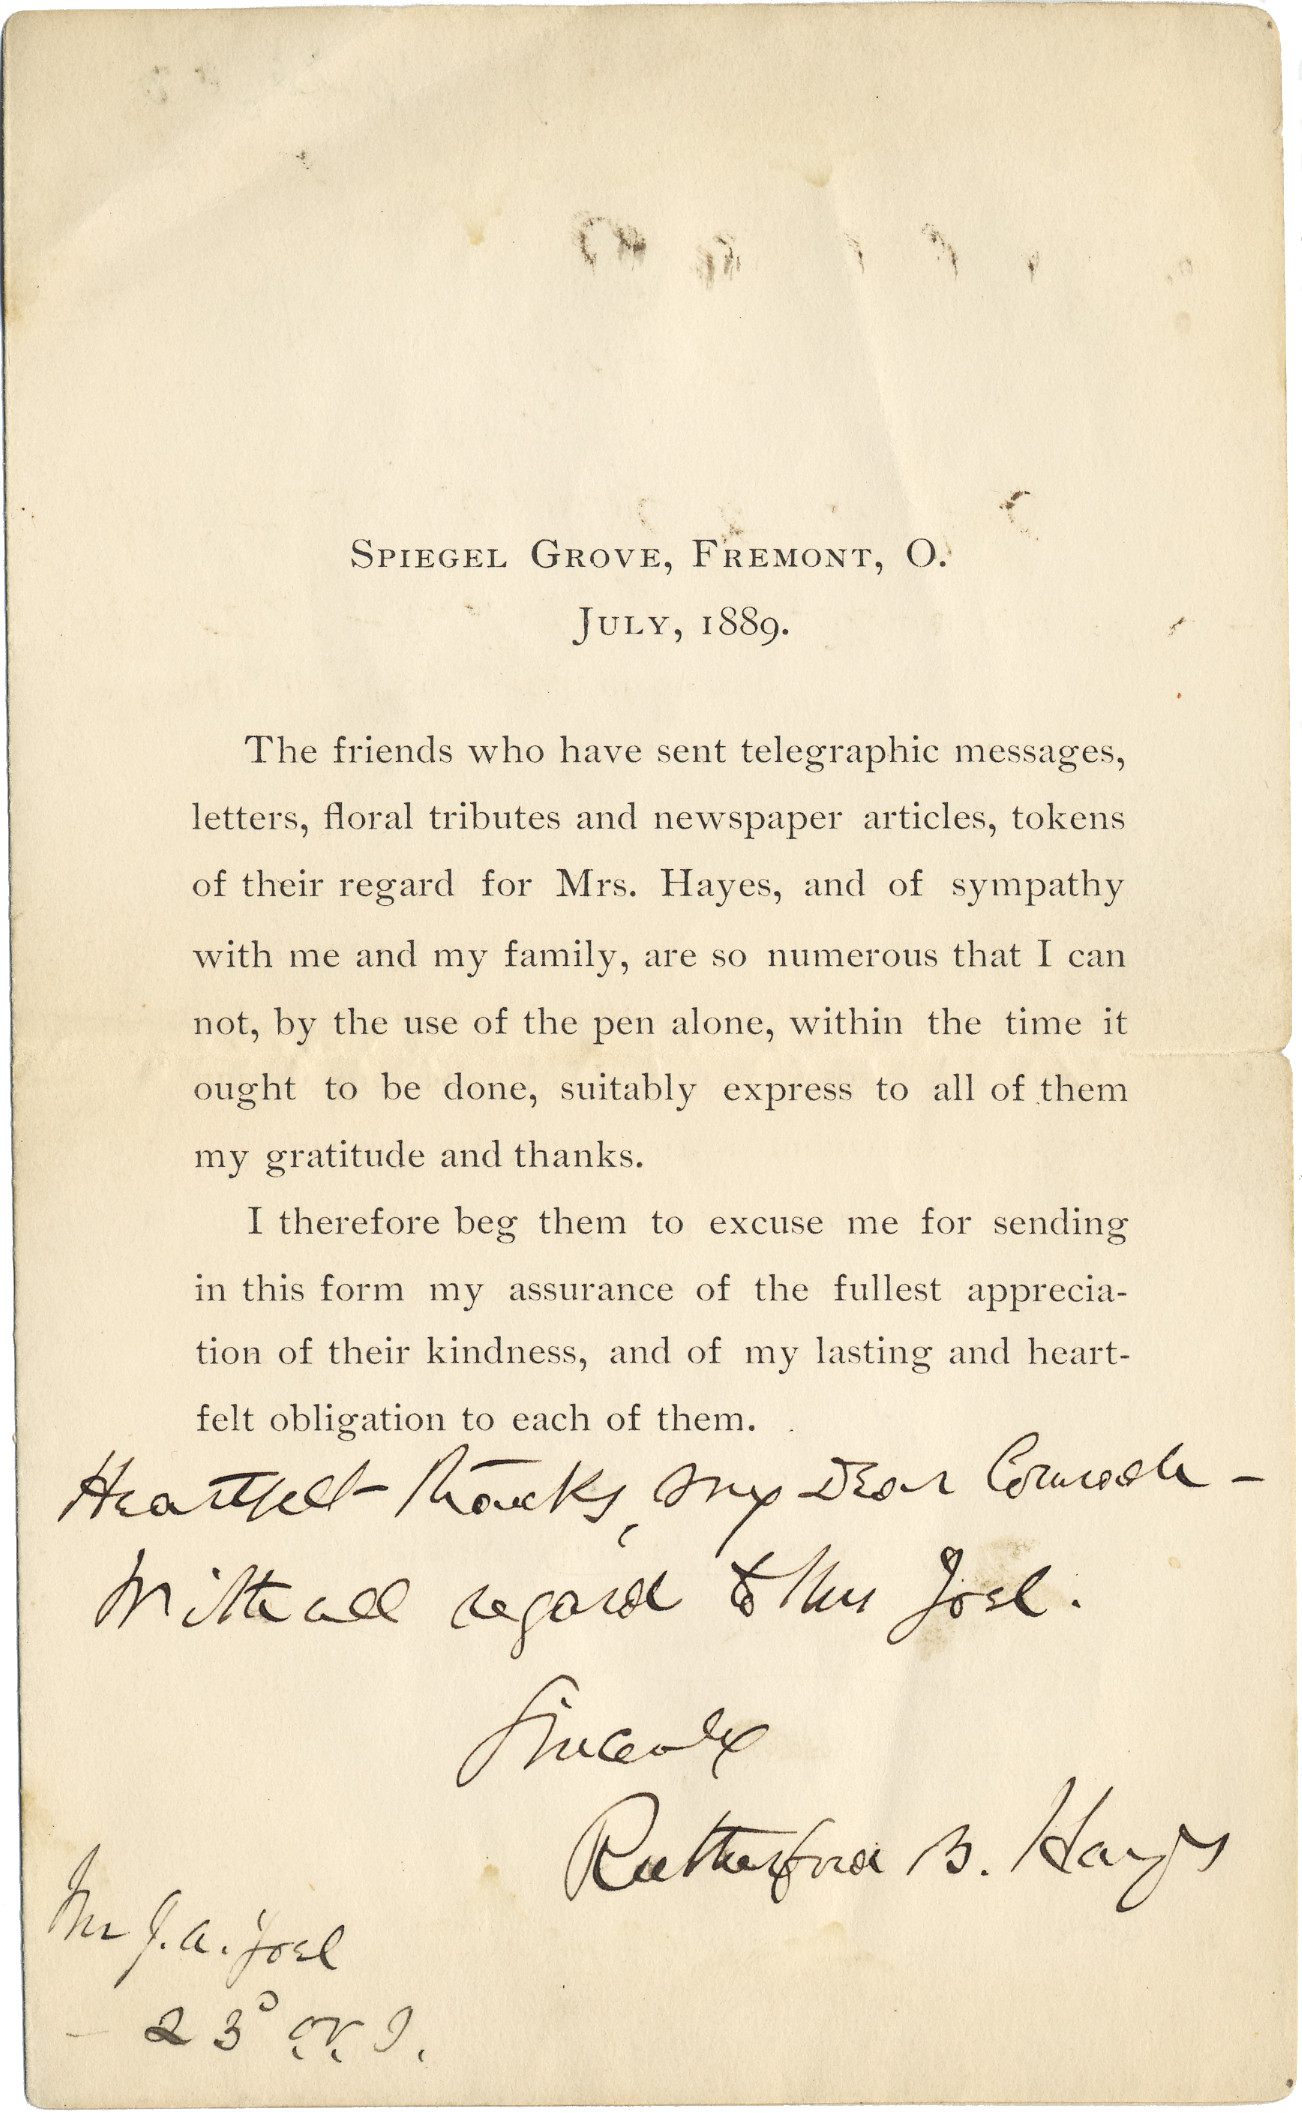 SPIEGEL GROVE, FREMONT, O.
JULY, 1889.
The friends who have sent telegraphic messages,
letters, floral tributes and newspaper articles, tokens
of their regard for Mrs. Hayes, and of sympathy
with me and my family, are so numerous that I can
not, by the use of the pen alone, within the time it
ought to be done, suitably express to all of them
my gratitude and thanks.
I therefore beg them to excuse me for sending
in this form my assurance of the fullest apprecia-
tion of their kindness, and of my lasting and heart-
felt obligation to each of them.
Heartfelt thanks, my Dear Comrade –
With all regard to Mrs Joel.
Sincerely
Rutherford B. Hayes
Mr J. A. Joel
– 23d O.V.I.